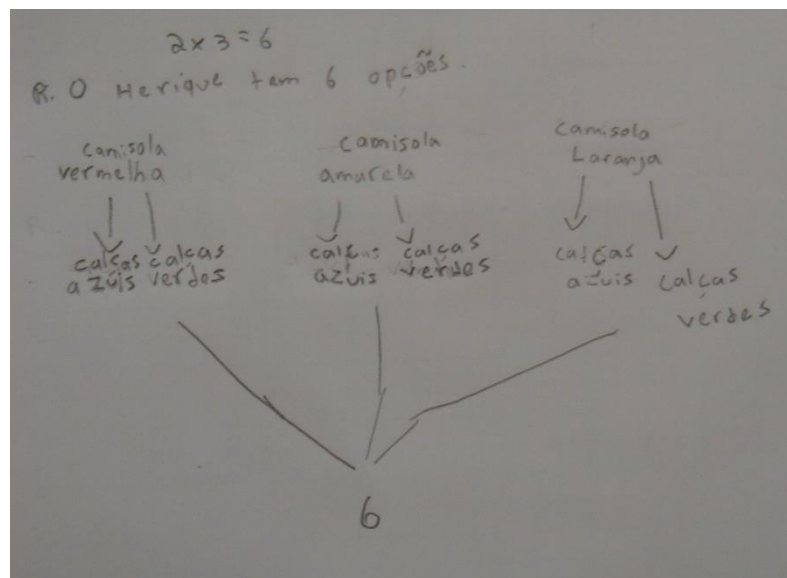 2 x 3 = 6
R. O Herique tem 6 opções.
camisola
vermelha
calças calças
azuis verdes
camisola
amarela
calças calças
azuis verdes
camisola
Laranja
calças
azuis
calças
verdes
6